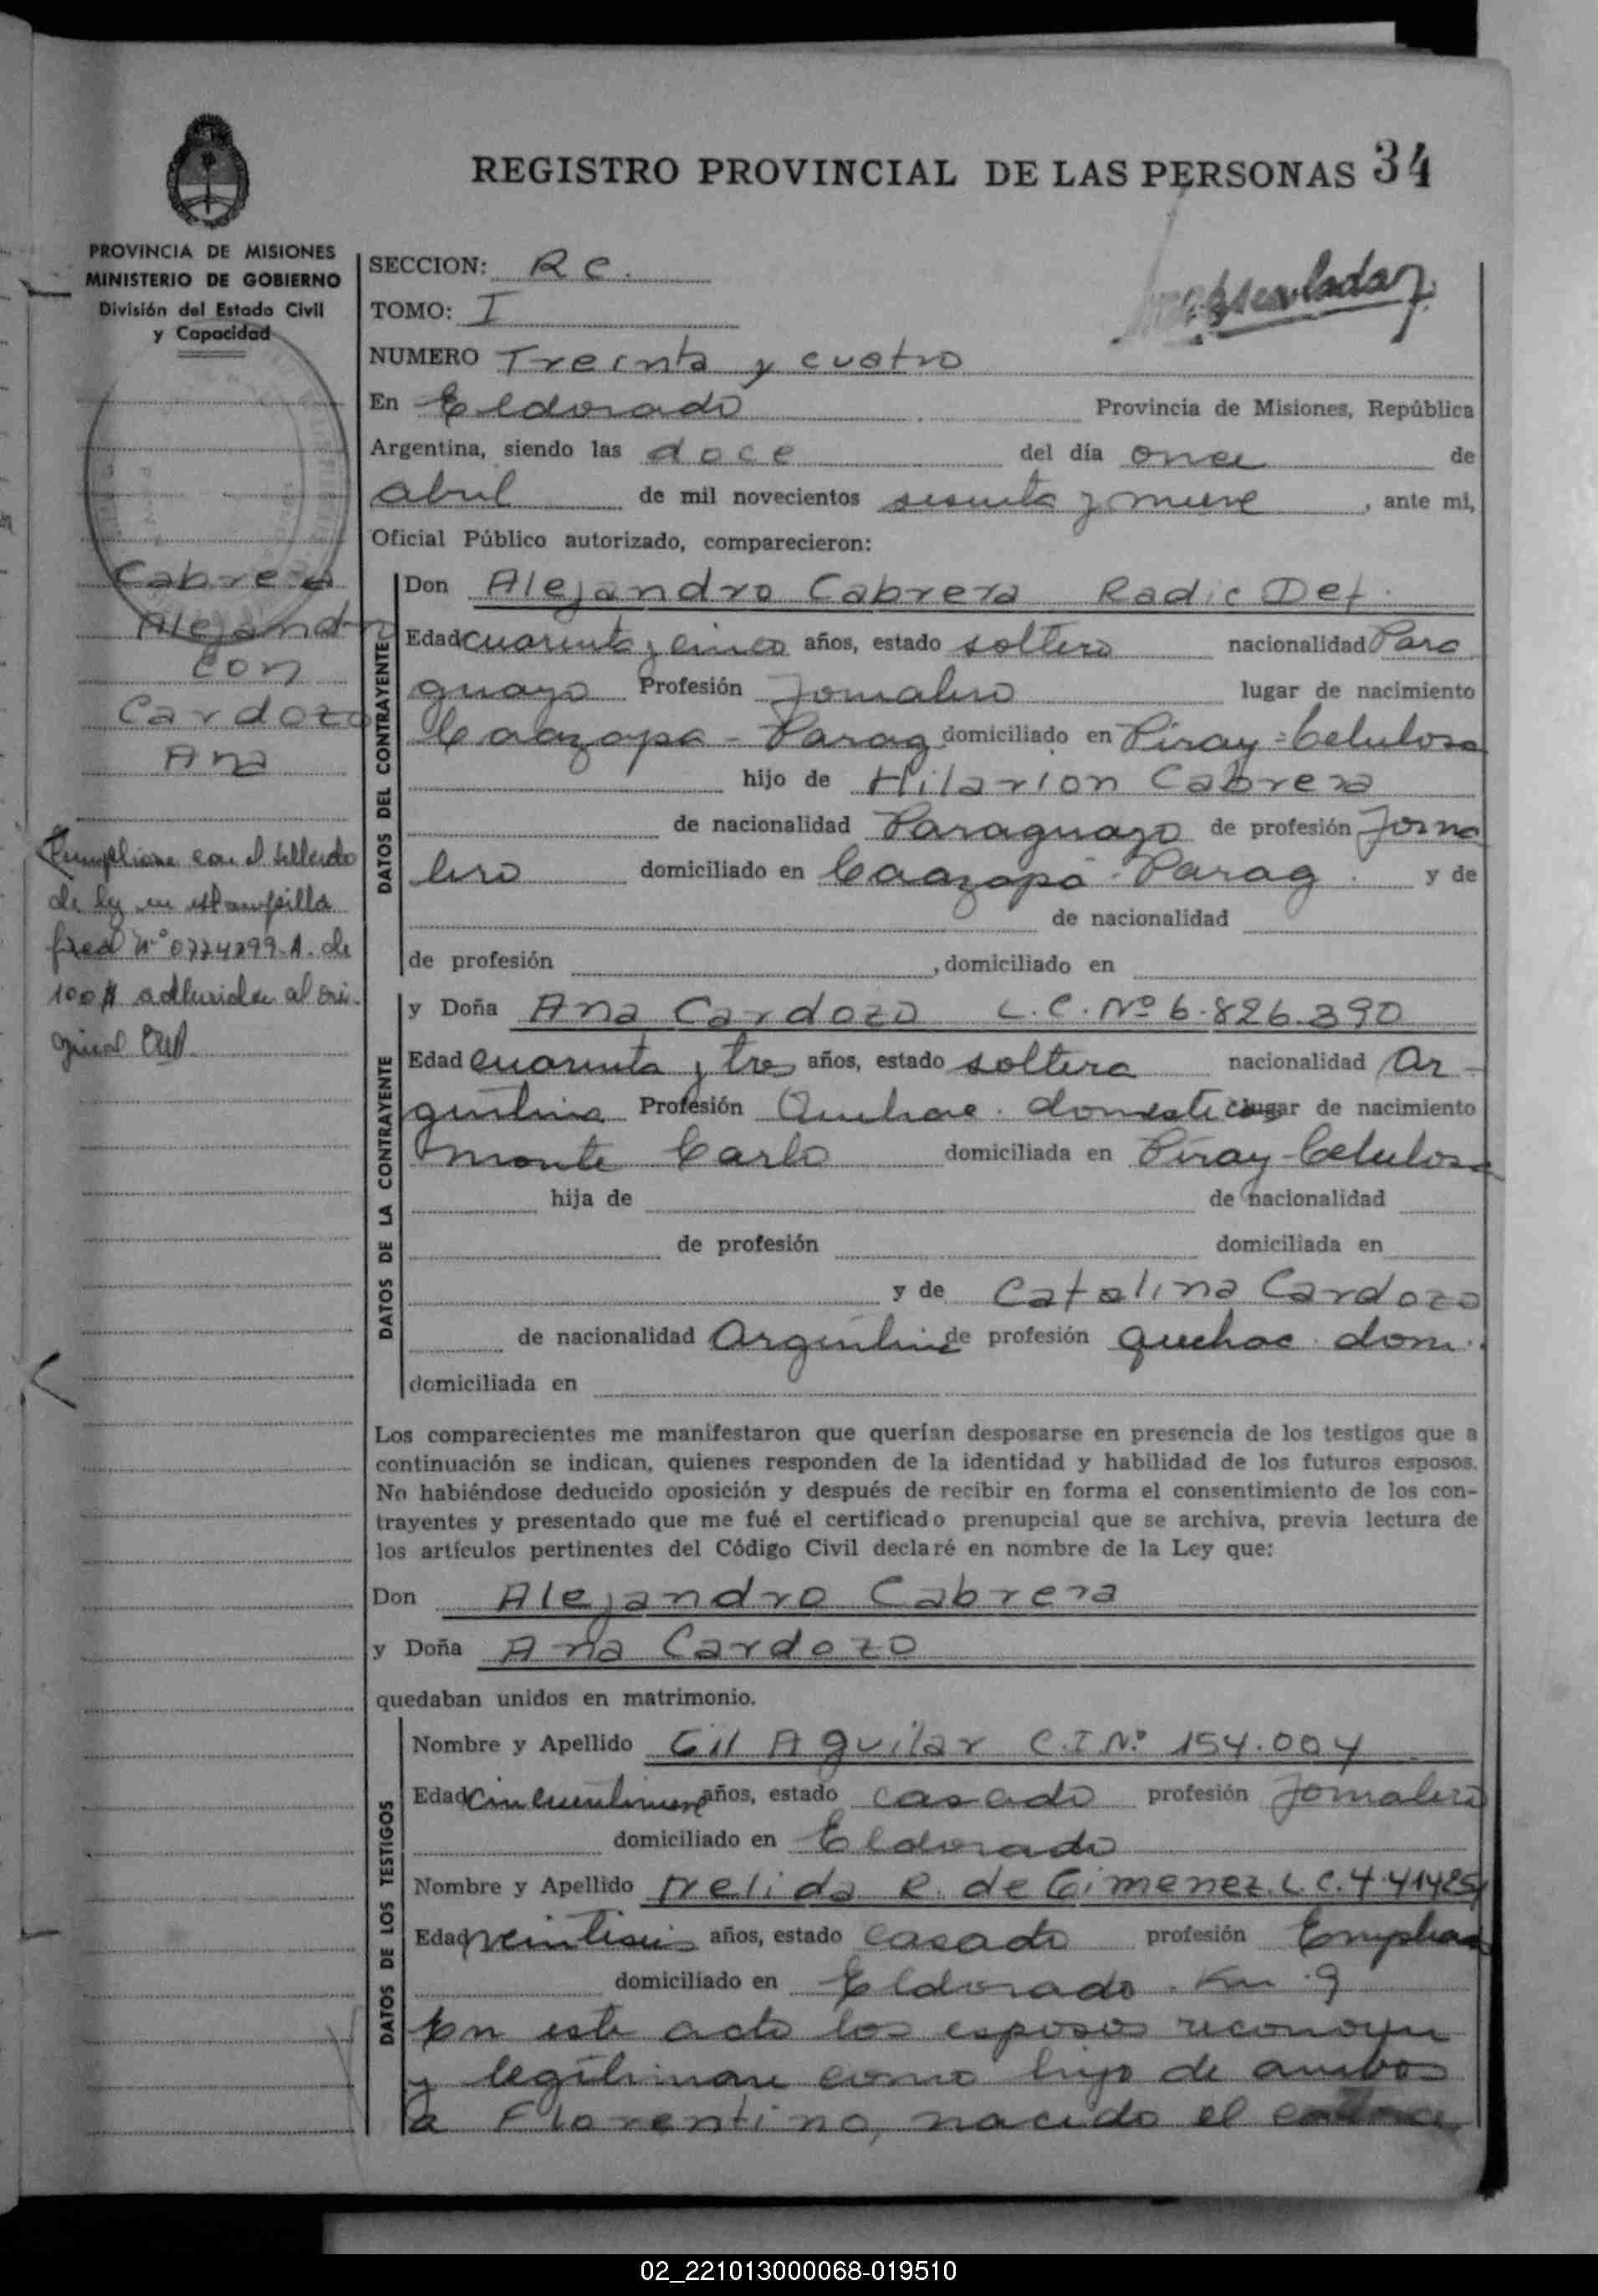 REGISTRO PROVINCIAL DE LAS PERSONAS 34
PROVINCIA DE MISIONES
MINISTERIO DE GOBIERNO
División del Estado Civil
y Capacidad
Cabrera
Alejandro
con
Cardozo
Ana
con el sellado
de ley en estampilla
fiscal Nº 0774299-A. de
100 $ adherida al ori-
ginal
SECCION: R C.
TOMO: I
NUMERO Treinta y cuatro
En Eldorado Provincia de Misiones, República
Argentina, siendo las doce del día once de
abril de mil novecientos sesenta y nueve, ante mi,
Oficial Público autorizado, comparecieron:
DATOS DEL CONTRAYENTE
Don Alejandro Cabrera Radic Def.
Edad cuarenta y cinco años, estado soltero nacionalidad Para
guayo Profesión Jornalero lugar de nacimiento
Caazapa - Parag domiciliado en Piray - Celulosa
hijo de Hilarion Cabrera
de nacionalidad Paraguayo de profesión Jorna
lero domiciliado en Caazapa - Parag. y de
de nacionalidad
de profesión , domiciliado en
DATOS DE LA CONTRAYENTE
y Doña Ana Cardozo L.C. Nº 6.826.390
Edad cuarenta y tres años, estado soltera nacionalidad Ar-
gentina Profesión Quehac. domesticos lugar de nacimiento
Monte Carlo domiciliada en Piray-Celulosa
hija de de nacionalidad
de profesión domiciliada en
y de Catalina Cardozo
de nacionalidad Argentina de profesión quehac. dom.
domiciliada en
Los comparecientes me manifestaron que querían desposarse en presencia de los testigos que a
continuación se indican, quienes responden de la identidad y habilidad de los futuros esposos.
No habiéndose deducido oposición y después de recibir en forma el consentimiento de los con-
trayentes y presentado que me fué el certificado prenupcial que se archiva, previa lectura de
los artículos pertinentes del Código Civil declaré en nombre de la Ley que:
Don Alejandro Cabrera
y Doña Ana Cardozo
quedaban unidos en matrimonio.
DATOS DE LOS TESTIGOS
Nombre y Apellido Gil Aguilar C.I Nº 154.004
Edad años, estado casado profesión Jornalero
domiciliado en Eldorado
Nombre y Apellido Nelida R. de Gimenez L.C. 4.41425
Edad veintiseis años, estado casado profesión Emplead
domiciliado en Eldorado. Km. 9
En este acto los esposos reconocen
y legitiman como hijo de ambos
a Florentino, nacido el
02_221013000068-019510